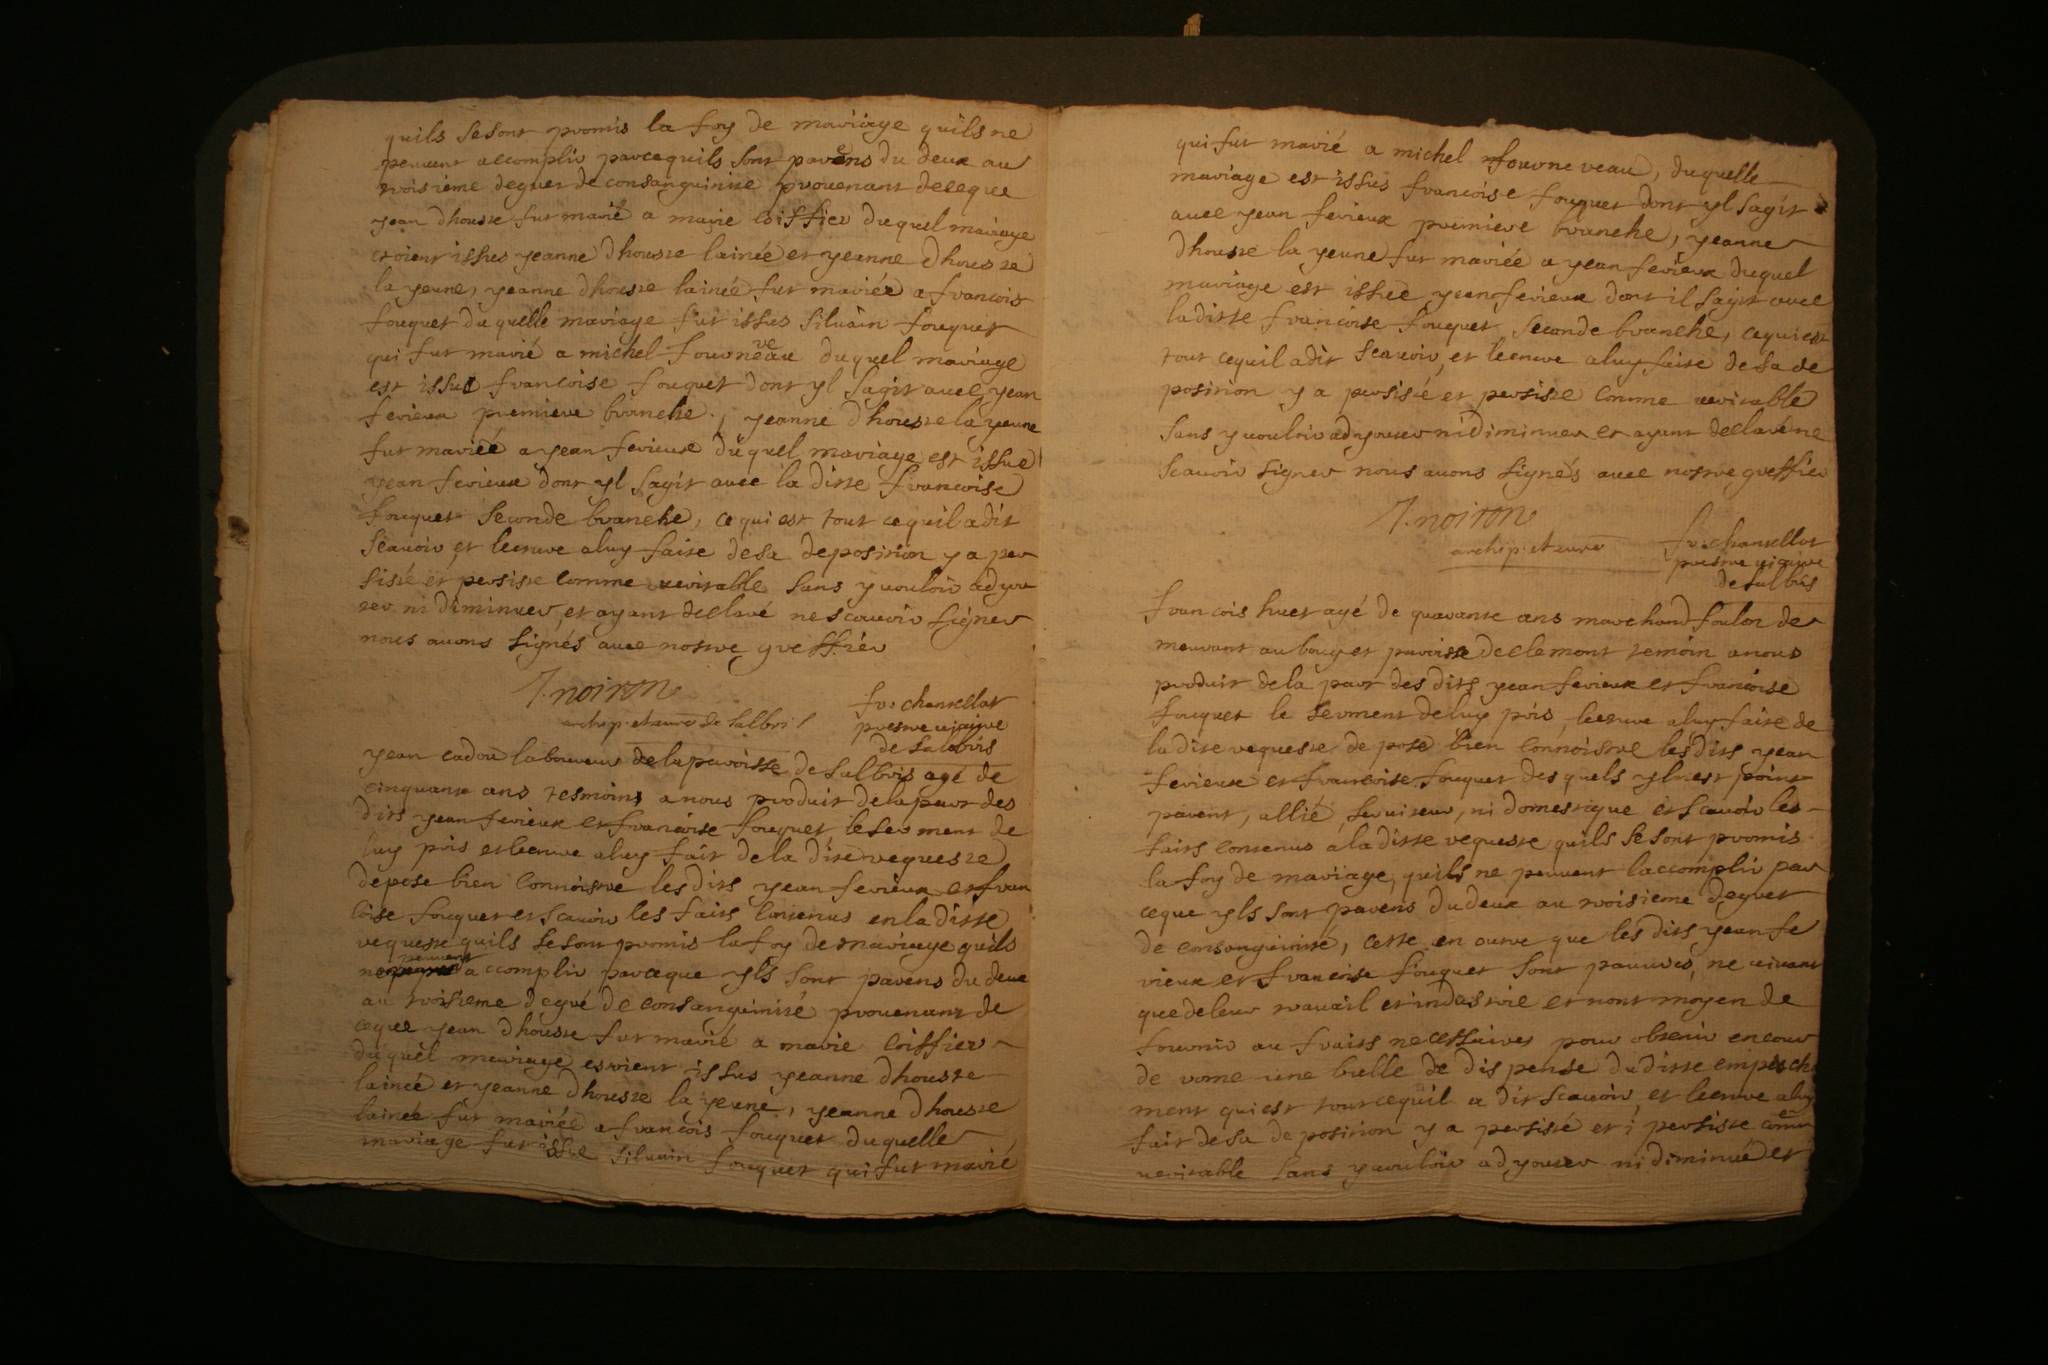 quils se sont promis la foy de mariage quils ne
peuuent accomplir parcequils sont parens du deux au
troisieme degret de consanguinite prouenant deceque
yean dhouste fut marié a marie coiffier duquel mariage
etoient issus yeanne dhouste lainée et yeanne dhouste
la yeune, yeanne dhouste lainée fut mariée a francois
fouquet du quelle mariage fut issus siluain fouquet
qui fut marié a michel fourneveau duquel mariage
est issue francoise fouquet dont yl sagit auec yean
ferieux premiere branche, yeanne dhouste la yeune
fut mariée a yean ferieux duquel mariage est issue
yean ferieux dont yl sagit auec la ditte francoise
fouquet seconde branche, ce qui est tout ce quil a dit
scauoir et lecture a luy faite de sa deposition y a per
sisté et persiste comme ueritable sans y uouloir adyou
ter ni diminuer, et ayant declaré ne scauoir signer
nous auons signés auec nostre greffier
J. noiron
archip. et curé de salbris
fr. chantellot
prestre uicaire
de salbris
yean cadou laboureur de la paroisse de salbris agé de
cinquante ans tesmoins a nous produit de la part des
dits yean ferieux et francoise fouquet le serment de
luy pris et lecture a luy fait de la dite requeste
depose bien connoistre les dits yean ferieux et fran
coise fouquet et scauoir les faits contenus en la ditte
requeste quils se sont promis la foy de mariage quils
ne peuuent accomplir parceque yls sont parens du deux
au troisieme degré de consanguinité prouenant de
ceque yean dhouste fut marié a marie coiffier
duquel mariage estoient issus yeanne dhouste
lainée et yeanne dhouste la yeune, yeanne dhouste
lainée fut mariée a francois fouquet duquelle
mariage fut issue siluain fouquet qui fut marié
qui fut marié a michel fourneveau, duquelle
mariage est issus francoise fouquet dont yl sagit
auec yean ferieux premiere branche, yeanne
dhouste la yeune fut mariée a yean ferieux duquel
mariage est issue yean ferieux dont il sagit auec
la ditte francoise fouquet seconde branche, ce qui est
tout ce quil a dit scauoir, et lecture a luy faite de sa de
position y a persisté et persiste comme ueritable
sans y uouloir adyouter ni diminuer et ayant declaré ne
scauoir signer nous auons signés auec nostre greffier
J. noiron
archip. et curé
fr. chantellot
prestre uicaire
de salbris
francois huet agé de quarante ans marchand foulon de
meurant au bourg et paroisse de clemont temoin a nous
produit de la part des dits yean ferieux et francoise
fouquet le serment de luy pris, lecture a luy faite de
la dite requeste depose bien connoistre les dits yean
ferieux et francoise fouquet desquels yl nest point
parent, allié, seruiteur, ni domestique et scauoir les
faits contenus a la ditte requeste quils se sont promis
la foy de mariage, quils ne peuuent laccomplir par
ceque yls sont parens du deux au troisieme degret
de consanguinité, cette en outre que les dits yean fe
rieux et francoise fouquet sont pauures, ne uiuant
que de leur trauail et industrie et nont moyen de
fournir au fraits necessaires pour obtenir en cour
de rome une bulle de dispense du ditte empesch
ment qui est tout cequil a dit scauoir, et lecture a luy
fait de sa deposition y a persisté et i persiste comme
ueritable sans y uouloir adyouter ni diminué et